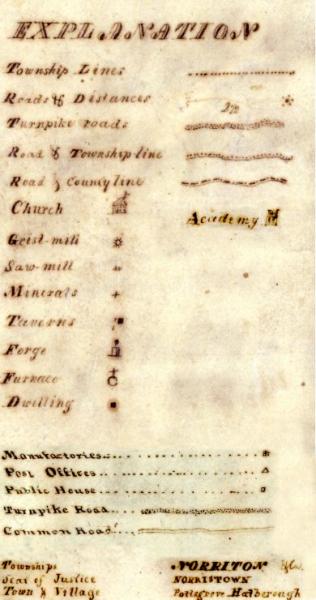 EXPLANATION
Township Lines
Roads & Distances
Turnpike roads
Road & Township line
Road & County line
Church
Academy
Geist-mill
Saw-mill
Minerals
Taverns
Forge
Furnace
Dwelling
Manufactories
Post Offices
Public House
Turnpike Road
Common Road
Townships NORRITON &c.
Seat of Justice NORRISTOWN
Town & Village Pottsgrove Hatborough